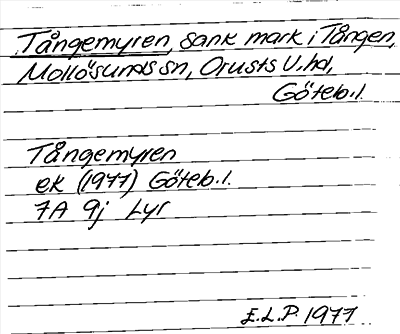 Tångemyren, sank mark i Tången,
Mollösunds sn, Orusts V. hd,
Göteb.l.
Tångemyren
ek (1977) Göteb.l.
7A 9j Lyr
E.L.P. 1977